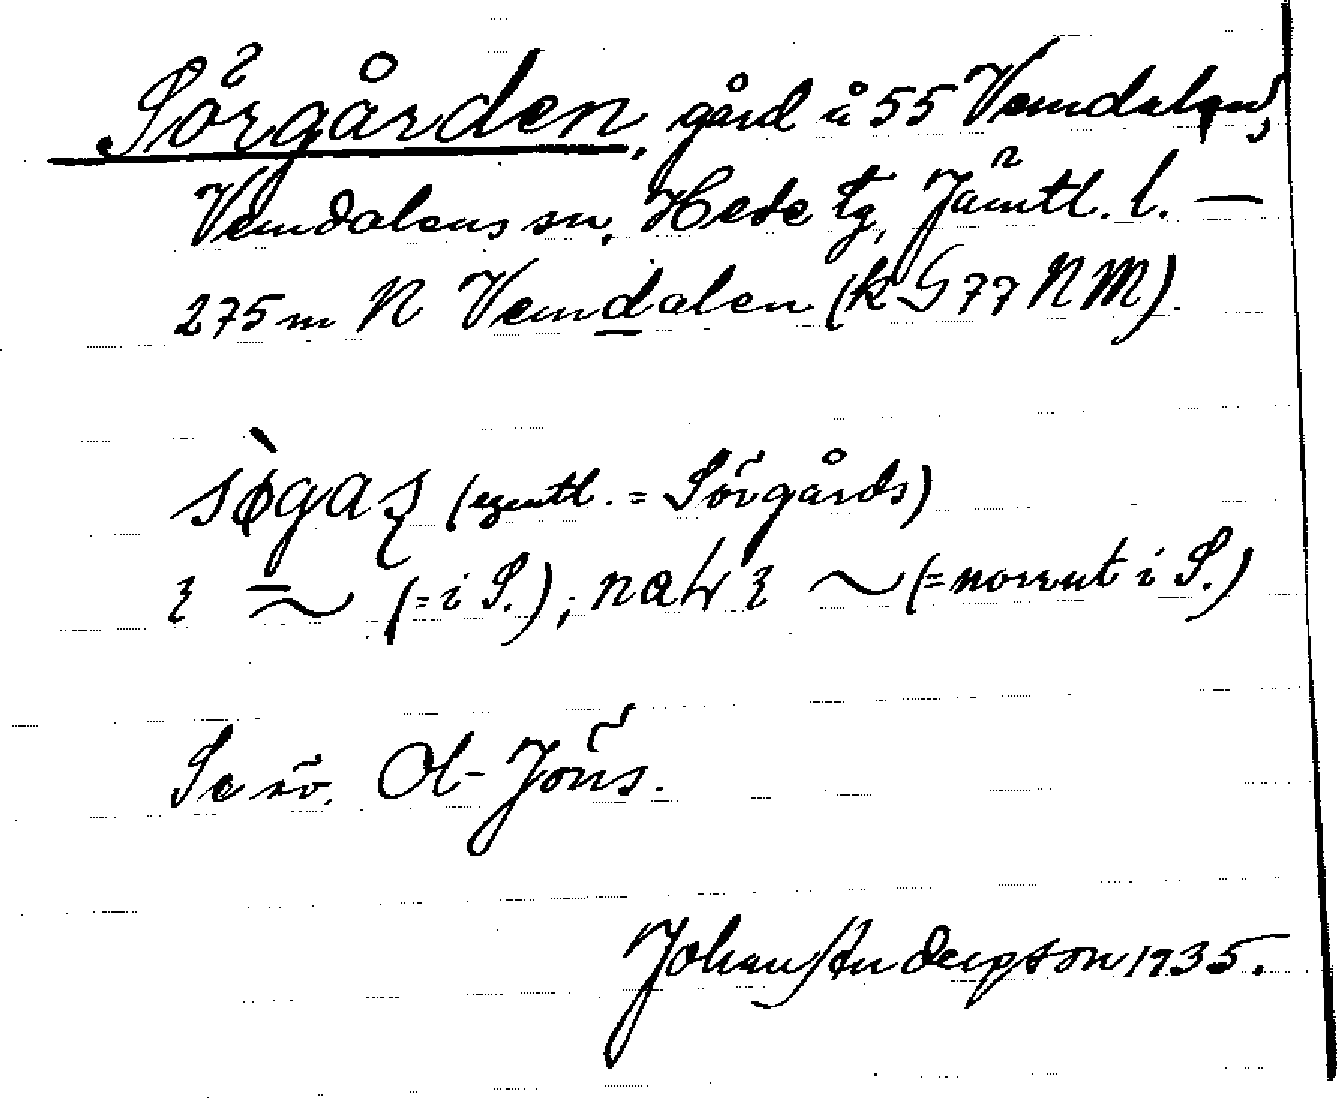 Sörgården, gård å 55 Vemdalen,
Vemdalens sn, Hede tg, Jämtl. l. —
275 m N Vemdalen (k G 77 NM).
(egentl. = Sörgårds)
(= i S.); (= norrut i S.)
Se rö. Ol-Jöns.
Johan Andersson 1935.